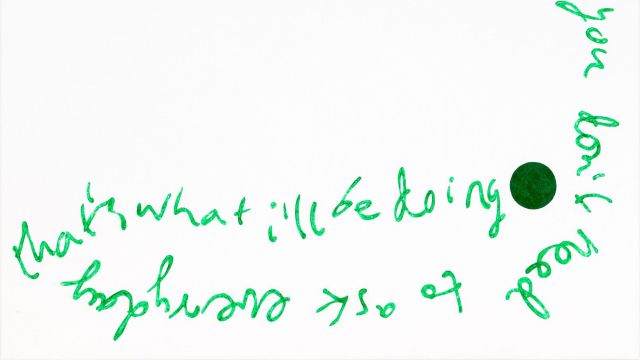 you don't need
to ask everyday
that's what i'll be doing